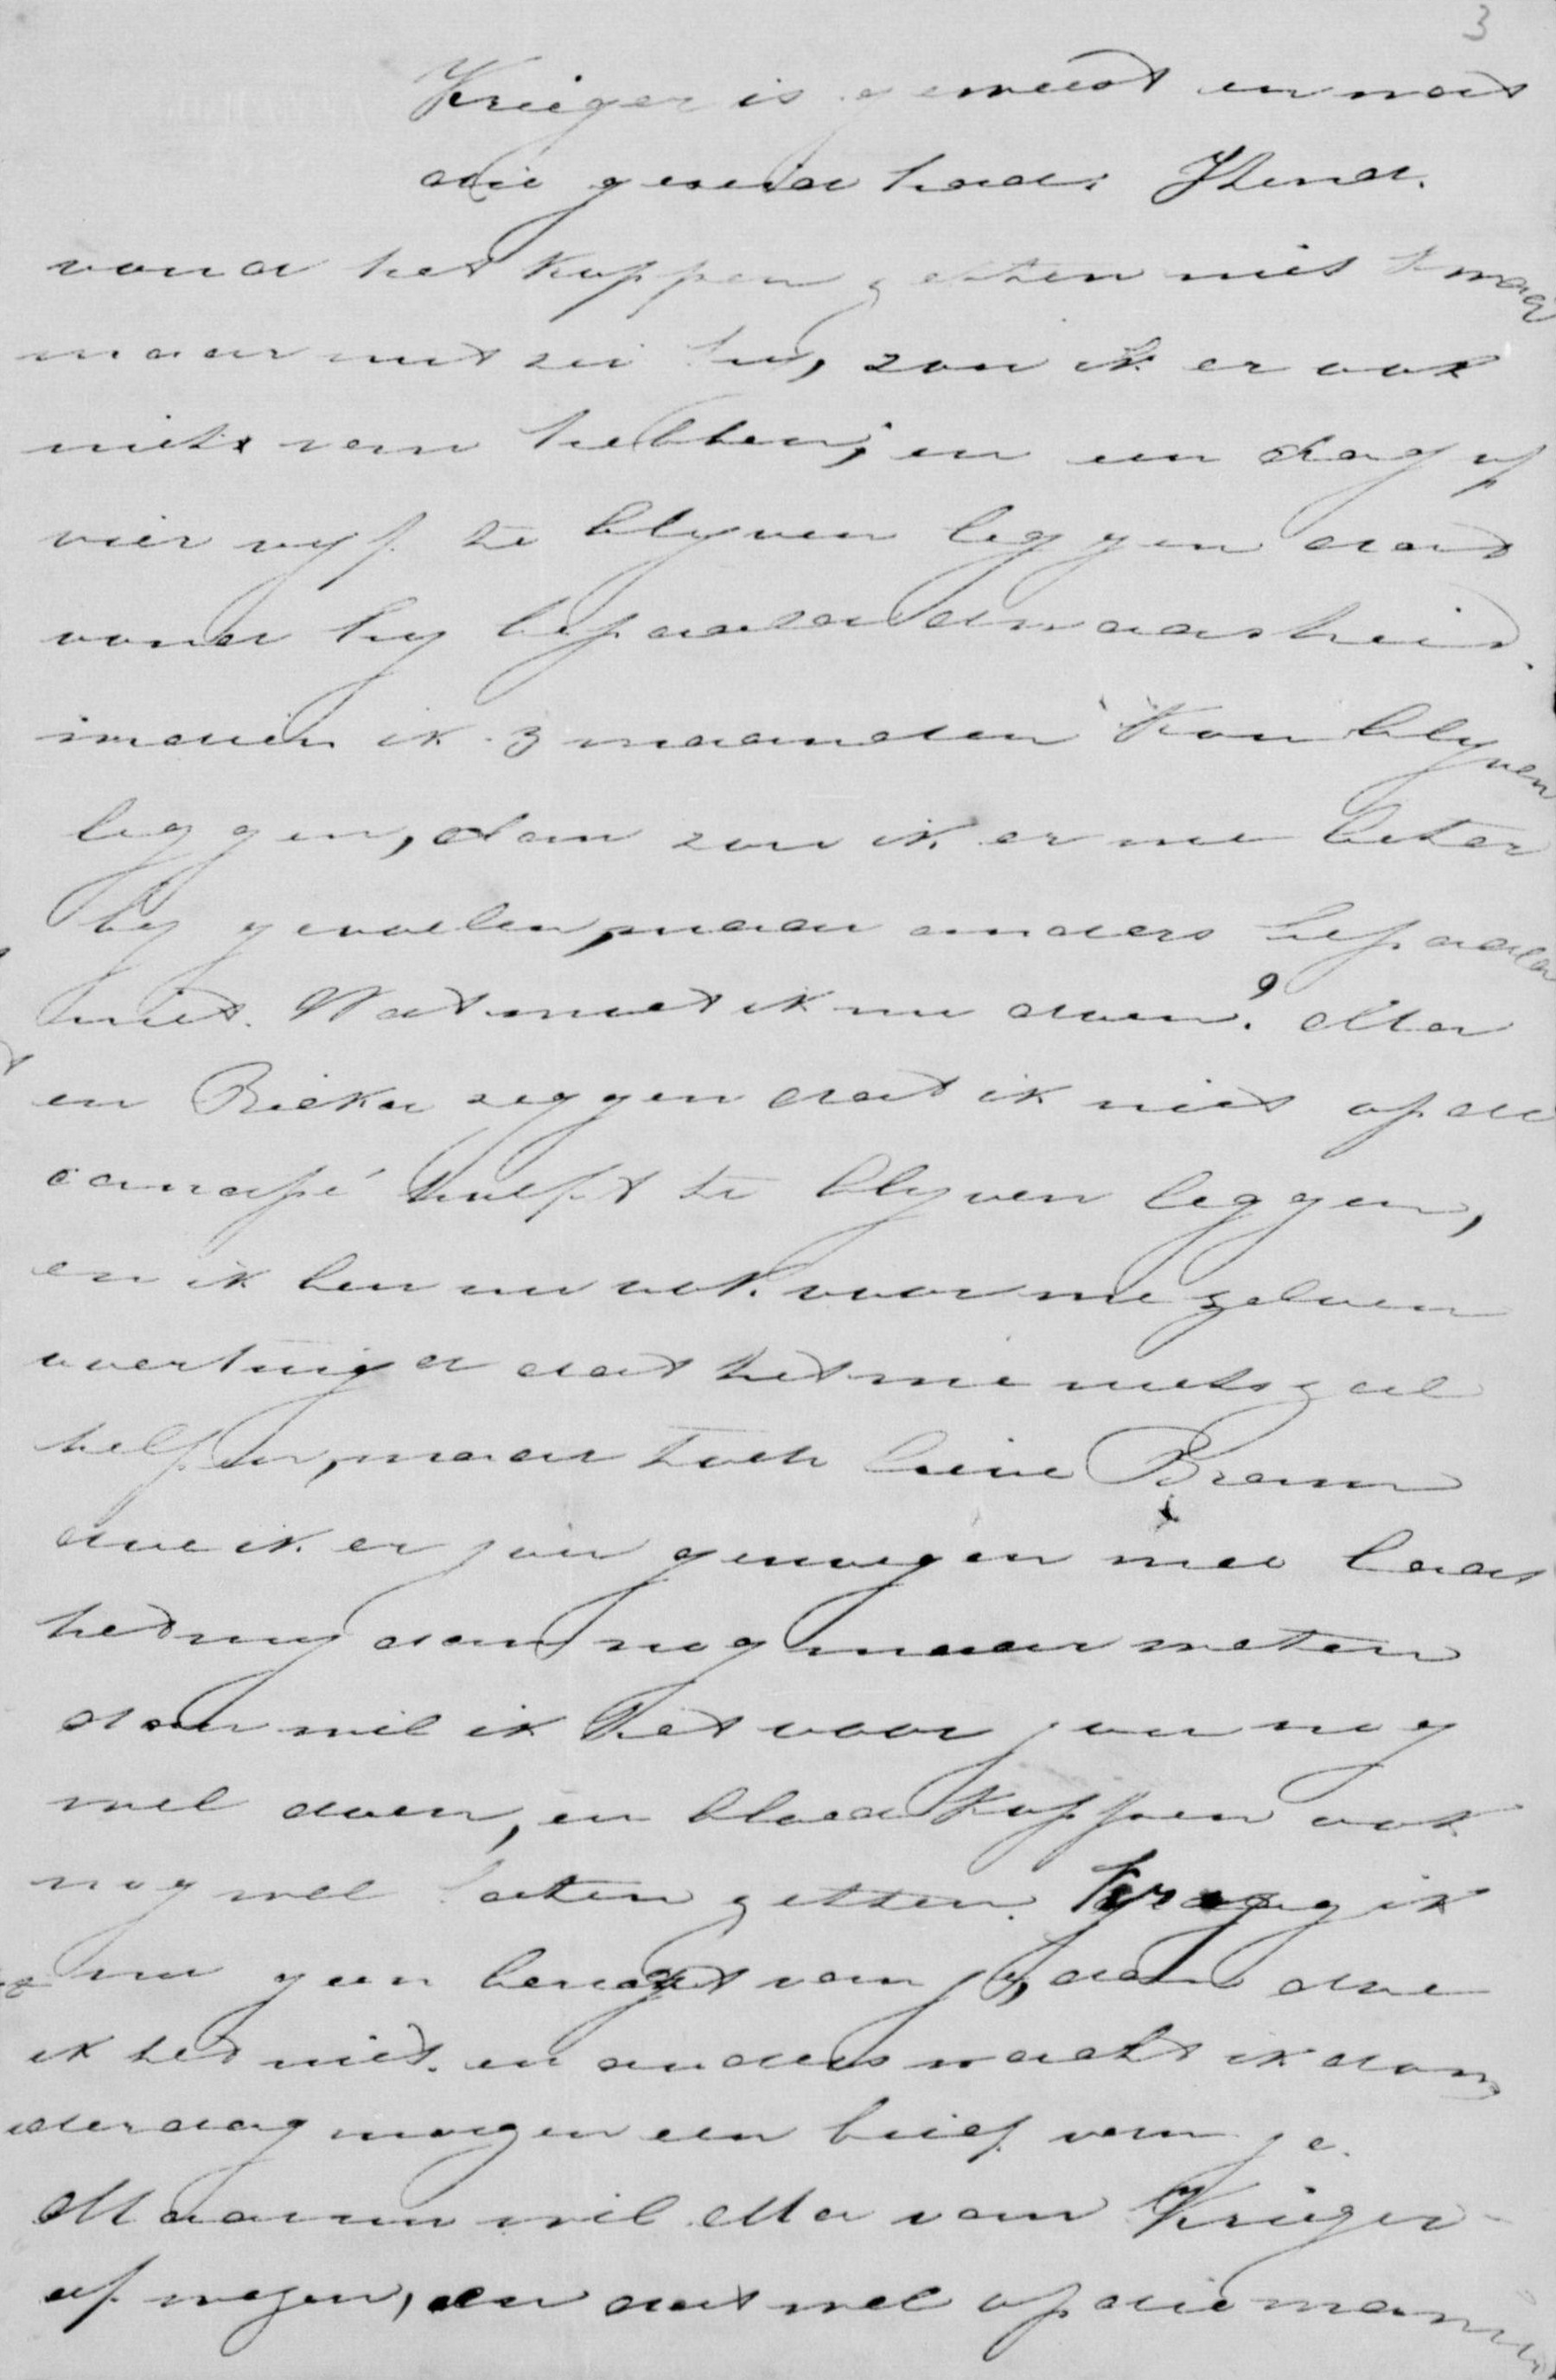 3
Krieger is geweest en wat
die gezeid had: Hend.
vond het koppen zetten niet kwaad
maar nut zei hij, zou ik er ook
niets van hebben, en een dag of
vier vyf te blyven leggen dat
vond hy bepaald dwaasheid.
indien ik 3 maanden kon blyven
leggen, dan zou ik er me beter
by gevoelen, maar anders bepaald
niet. Wat moet ik nu doen? Ma
en Rieka zeggen dat ik niet op de
canapé hoeft te blyven leggen,
en ik ben nu ook voor me zelven
overtuigd dat het me niets zal
helpen, maar toch lieve Bram
doe ik er jou genoegen mee laat
het my dan nog maar weten
dan wil ik het voor jou nog
wel doen, en bloedkoppen ook
nog wel laten zetten. Kryg ik
nu geen berigt van je, dan doe
ik het niet. en anders wacht ik don
derdag morgen een brief van je.
Maar nu wil Ma van Krieger
af wezen, en dat wel op die manier